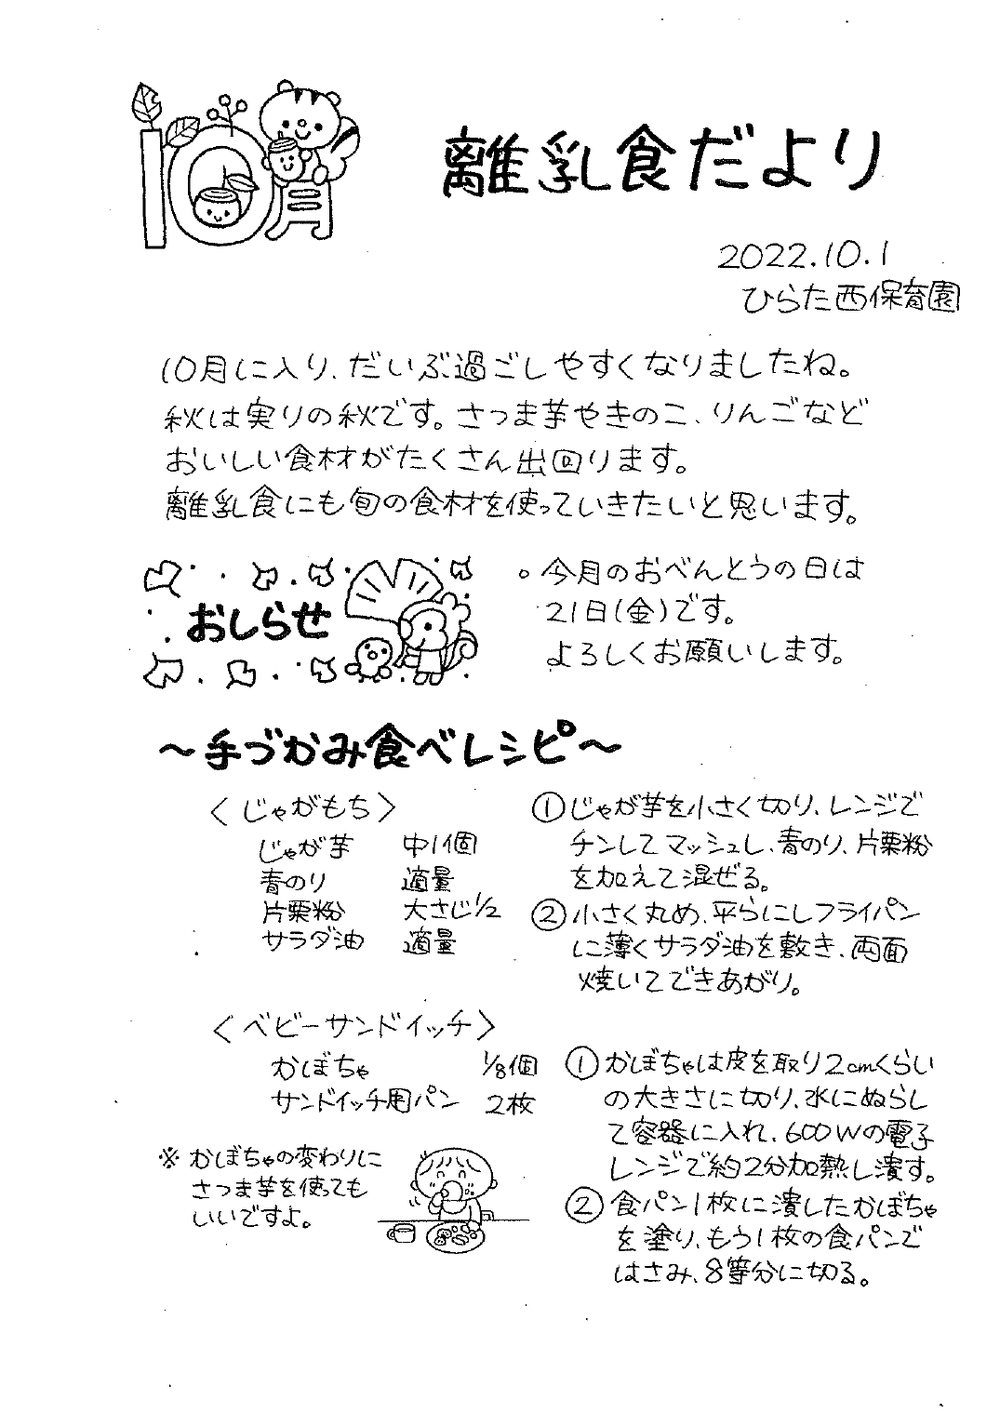 10月
離乳食だより
2022.10.1
ひらた西保育園
10月に入り、だいぶ過ごしやすくなりましたね。
秋は実りの秋です。さつま芋やきのこ、りんごなど
おいしい食材がたくさん出回ります。
離乳食にも旬の食材を使っていきたいと思います。
おしらせ
。今月のおべんとうの日は
21日(金)です。
よろしくお願いします。
～手づかみ食べレシピ～
〈じゃがもち〉
じゃが芋 中1個
青のり 適量
片栗粉 大さじ1/2
サラダ油 適量
①じゃが芋を小さく切り、レンジで
チンしてマッシュし、青のり、片栗粉
を加えて混ぜる。
②小さく丸め、平らにしフライパン
に薄くサラダ油を敷き、両面
焼いてできあがり。
〈ベビーサンドイッチ〉
かぼちゃ 1/8個
サンドイッチ用パン 2枚
※かぼちゃの変わりに
さつま芋を使っても
いいですよ。
①かぼちゃは皮を取り2cmくらい
の大きさに切り、水にぬらし
て容器に入れ、600Wの電子
レンジで約2分加熱し潰す。
②食パン1枚に潰したかぼちゃ
を塗り、もう1枚の食パンで
はさみ、8等分に切る。